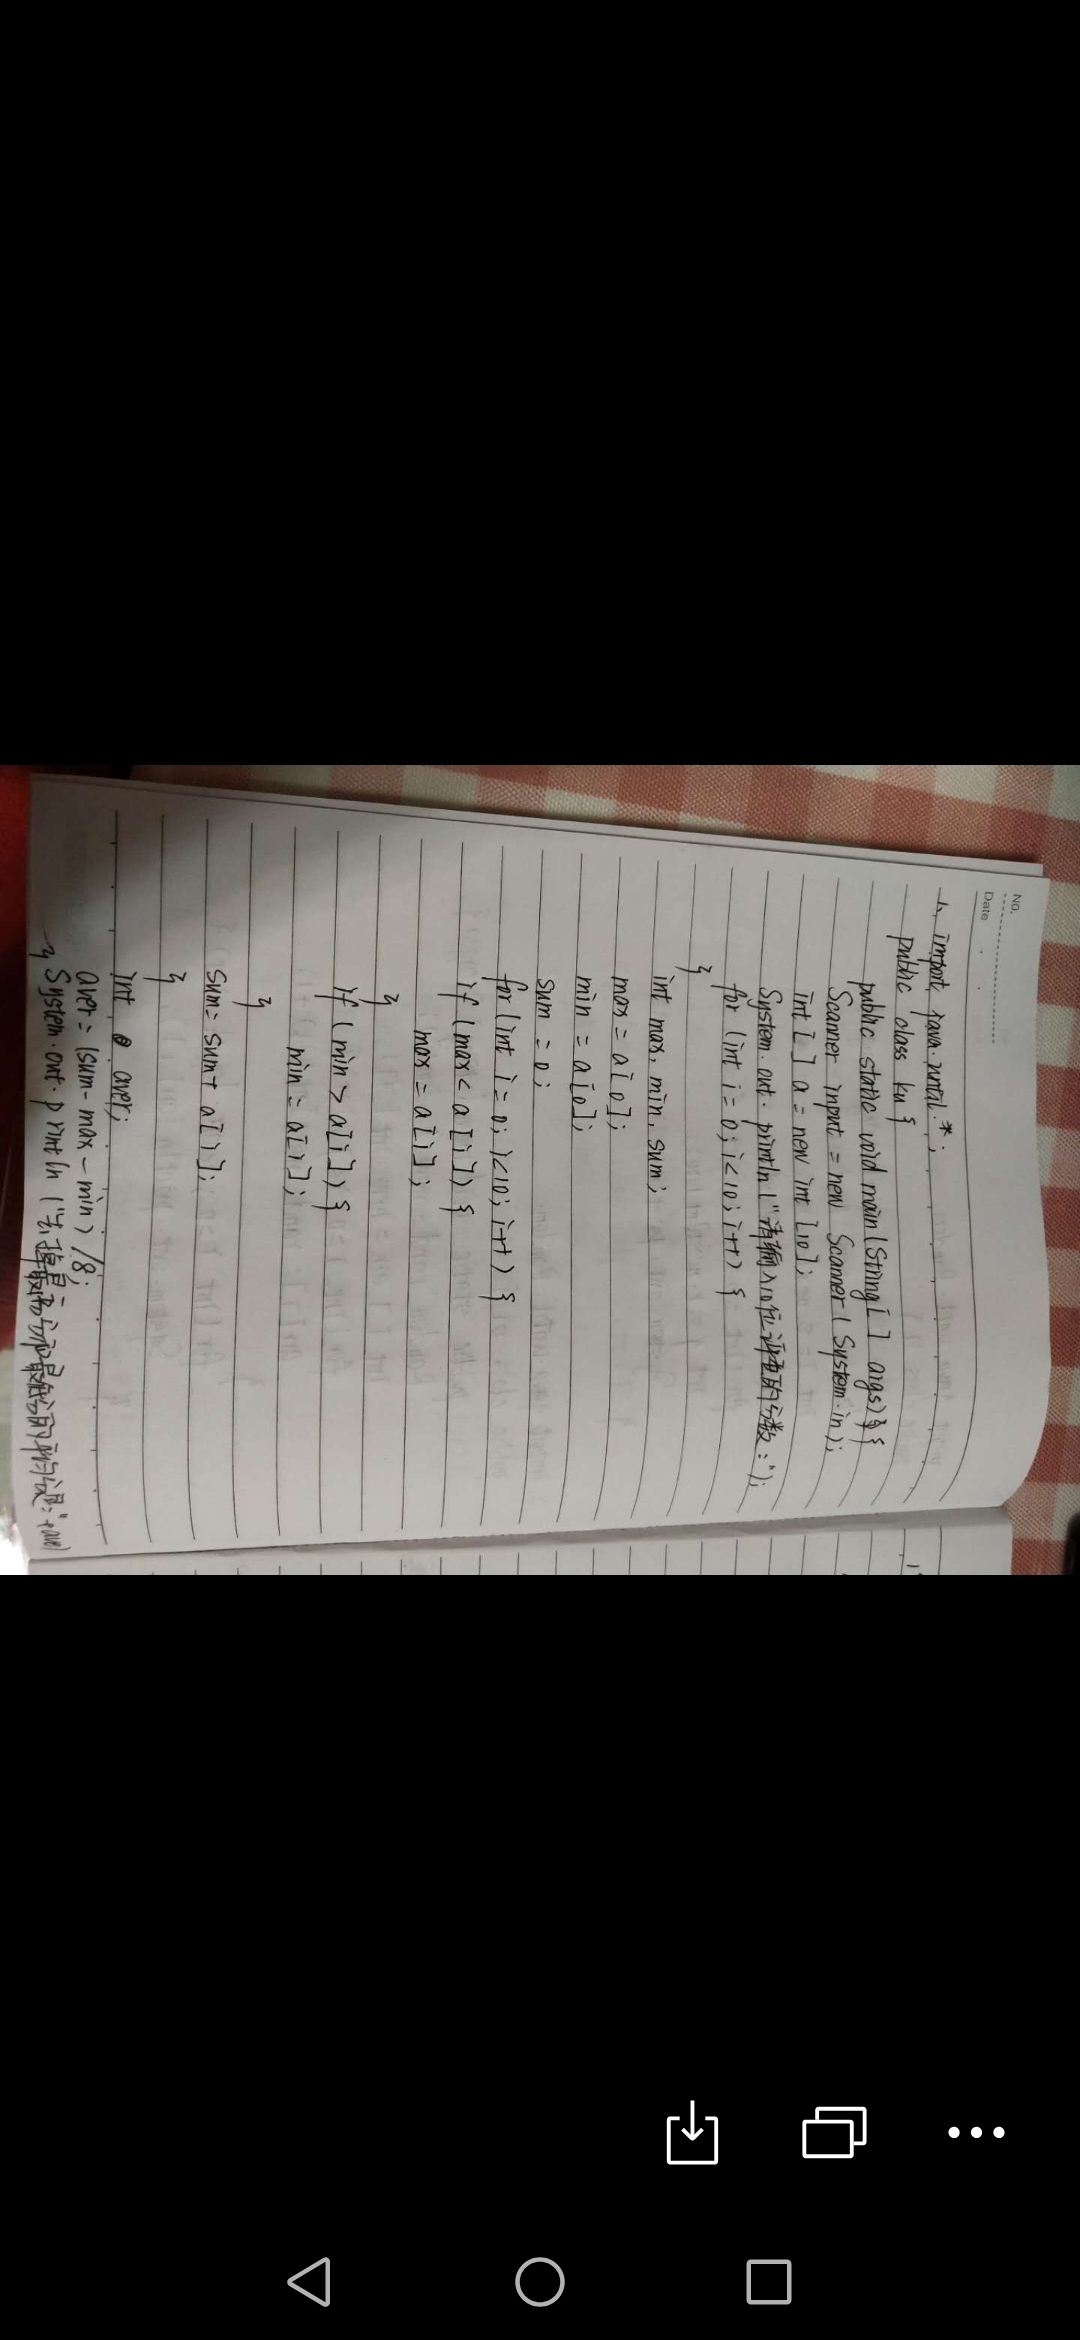 No.
Date
一、import java.util.*;
public class ku {
public static void main(String[] args) {
Scanner input = new Scanner(System.in);
int[] a = new int[10];
System.out.println("请输入10位评委的分数：");
for (int i = 0; i<10; i++) {
}
int max, min, sum;
max = a[0];
min = a[0];
sum = 0;
for (int i = 0; i<10; i++) {
if (max < a[i]) {
max = a[i];
}
if (min > a[i]) {
min = a[i];
}
sum = sum + a[i];
}
int aver;
aver = (sum - max - min) /8;
} System.out.println ("去掉最高分和最低分的平均分是："+aver)